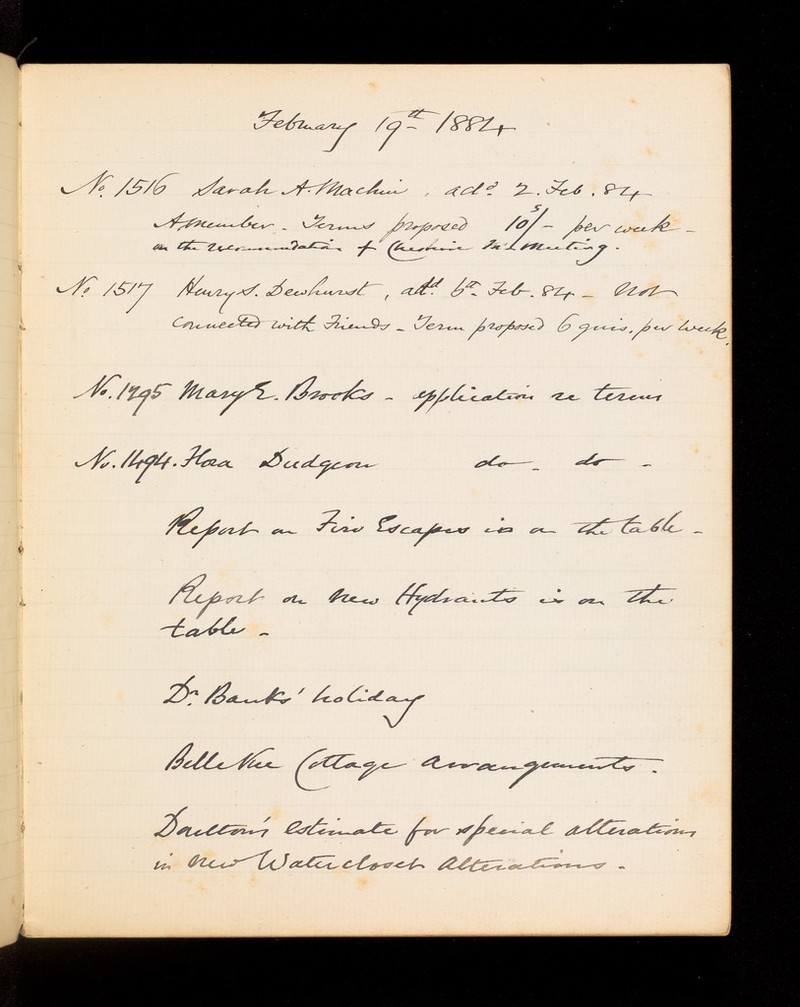 February 19th 1884
No. 1516 Sarah A. Machin, add 2. Feb. 84
A member - Terms proposed 10s/- per week -
on the recommendation of Cheshire Mo. Meeting.
No. 1517 Henry S. Dewhurst, add. 6th Feb. 84 - Not
connected with Friends - Term proposed 6 guis. per week.
No. 1295 Mary E. Brooks - application re terms
No. 1494. Flora Dudgeon do - do -
Report on Fire Escapes is on the table -
Report on new Hydrants is on the
table -
Dr. Banks' holiday
Belle Vue Cottage arrangements.
Doulton's estimate for special alterations
in new Watercloset Alterations -